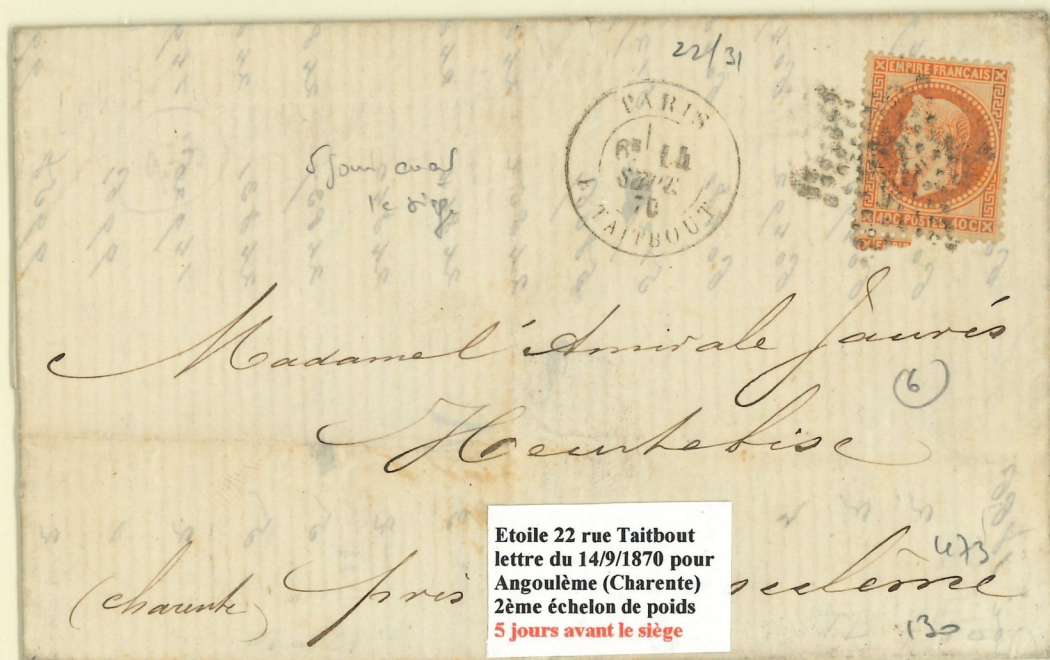 22/31
EMPIRE FRANCAIS
40C POSTES 40C
PARIS
6E 14
SEPT.
70
R. TAITBOUT
5 jours avant
le siège
Madame l'Amirale Jaurés
(6)
Heurtebise
(charente) près
ulême
473
130
Etoile 22 rue Taitbout
lettre du 14/9/1870 pour
Angoulème (Charente)
2ème échelon de poids
5 jours avant le siège